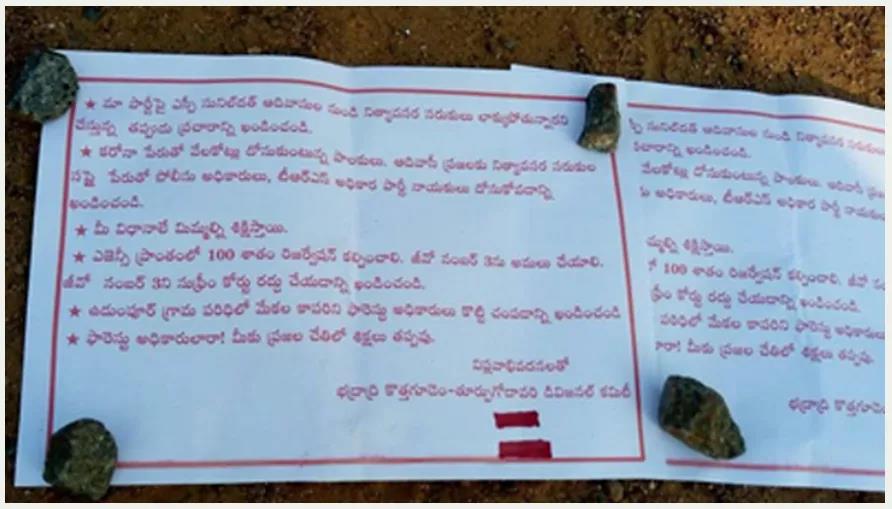 ★ మా పార్టీపై ఎస్పీ సునిల్‌దత్ ఆదివాసుల నుండి నిత్యావసర సరుకులు లాక్కుపోతున్నారని
చేస్తున్న తప్పుడు ప్రచారాన్ని ఖండించండి.
★ కరోనా పేరుతో వేలకోట్లు దోసుకుంటున్న పాలకులు. ఆదివాసీ ప్రజలకు నిత్యావసర సరుకుల
సప్లై పేరుతో పోలీసు అధికారులు, టీఆర్ఎస్ అధికార పార్టీ నాయకులు దోసుకోవడాన్ని
ఖండించండి.
★ మీ విధానాలే మిమ్మల్ని శిక్షిస్తాయి.
★ ఎజెన్సీ ప్రాంతంలో 100 శాతం రిజర్వేషన్ కల్పించాలి. జీవో నంబర్ 3ను అమలు చేయాలి.
జీవో నంబర్ 3ని సుప్రీం కోర్టు రద్దు చేయడాన్ని ఖండించండి.
★ ఉదుంపూర్ గ్రామ పరిధిలో మేకల కాపరిని ఫారెస్టు అధికారులు కొట్టి చంపడాన్ని ఖండించండి
★ ఫారెస్టు అధికారులారా! మీకు ప్రజల చేతిలో శిక్షలు తప్పవు.
విప్లవాభివదనలతో
భద్రాద్రి కొత్తగూడెం-తూర్పుగోదావరి డివిజనల్ కమిటీ
సునిల్‌దత్ ఆదివాసుల నుండి నిత్యావసర సరుకులు
ఖండించండి.
వేలకోట్లు దోసుకుంటున్న పాలకులు. ఆదివాసీ
అధికారులు, టీఆర్ఎస్ అధికార పార్టీ నాయకులు
శిక్షిస్తాయి.
100 శాతం రిజర్వేషన్ కల్పించాలి. జీవో
కోర్టు రద్దు చేయడాన్ని ఖండించండి.
పరిధిలో మేకల కాపరిని ఫారెస్టు అధికారులు
మీకు ప్రజల చేతిలో శిక్షలు తప్పవు.
భద్రాద్రి కొత్తగూ